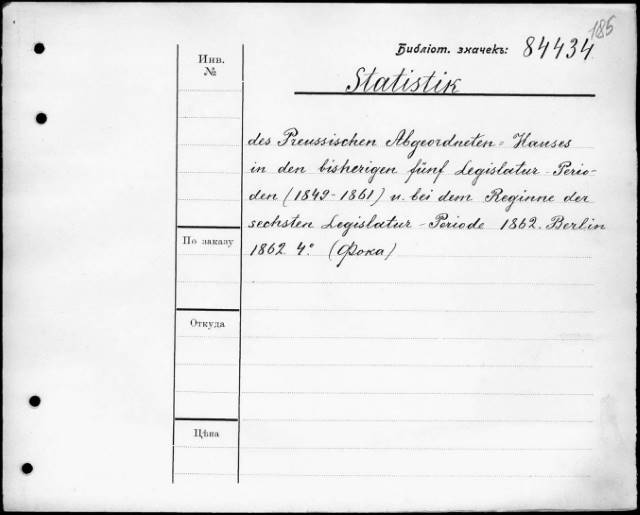 185
Библіот. значекъ: 84434
Инв. №
Statistik
des Preussischen Abgeordneten-Hauses
in den bisherigen fünf Legislatur-Perio-
den (1849-1861) u. bei dem Reginne der
sechsten Legislatur-Periode 1862. Berlin
По заказу
1862. 4° (Фока)
Откуда
Цѣна